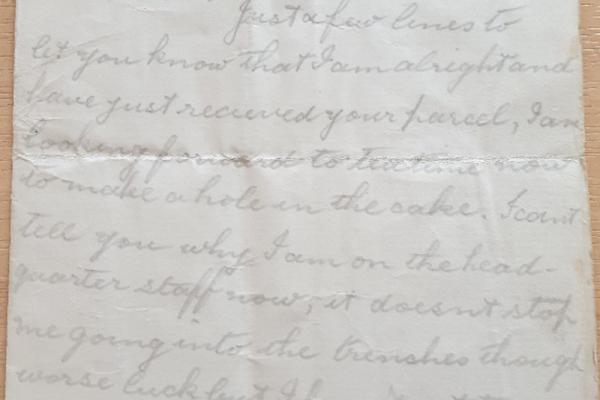 Just a few lines to
let you know that I am alright and
have just recieved your parcel, I am
looking forward to teatime now
to make a hole in the cake. I cant
tell you why I am on the head-
quarter staff now, it doesnt stop
me going into the trenches though
worse luck but I